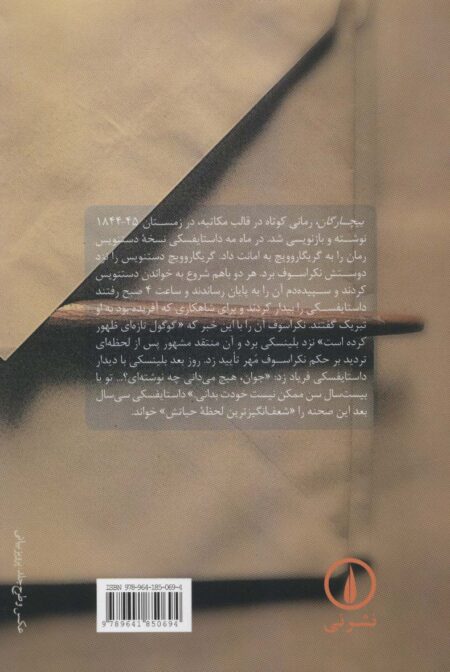 بیچارگان، رمانی کوتاه در قالب مکاتبه، در زمستان ۴۵-۱۸۴۴
نوشته و بازنویسی شد. در ماه مه داستایفسکی نسخهٔ دستنویس
رمان را به گریگاروویچ به امانت داد. گریگاروویچ دستنویس را نزد
دوستش نکراسوف برد. هر دو باهم شروع به خواندن دستنویس
کردند و سپیده‌دم آن را به پایان رساندند و ساعت ۴ صبح رفتند
داستایفسکی را بیدار کردند و برای شاهکاری که آفریده بود به او
تبریک گفتند. نکراسوف آن را با این خبر که «گوگول تازه‌ای ظهور
کرده است» نزد بلینسکی برد و آن منتقد مشهور پس از لحظه‌ای
تردید بر حکم نکراسوف مُهر تأیید زد. روز بعد بلینسکی با دیدار
داستایفسکی فریاد زد: «جوان، هیچ می‌دانی چه نوشته‌ای؟... تو با
بیست‌سال سن ممکن نیست خودت بدانی.» داستایفسکی سی‌سال
بعد این صحنه را «شعف‌انگیزترین لحظهٔ حیاتش» خواند.
عکس و طرح جلد: پرویز بیانی
ISBN 978-964-185-069-4
9 789641 850694
نشرنی